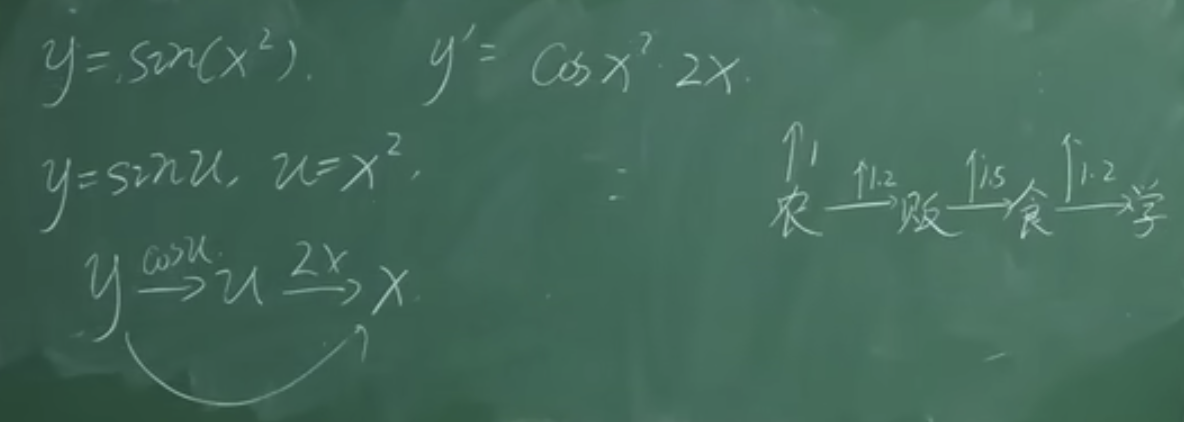 y=sin(x²). y'= cosx²·2x.
y=sinu, u=x²,
y →cosu. u →2x x.
↑1 农 →↑1.2 贩 →↑1.5 食 →↑1.2 学